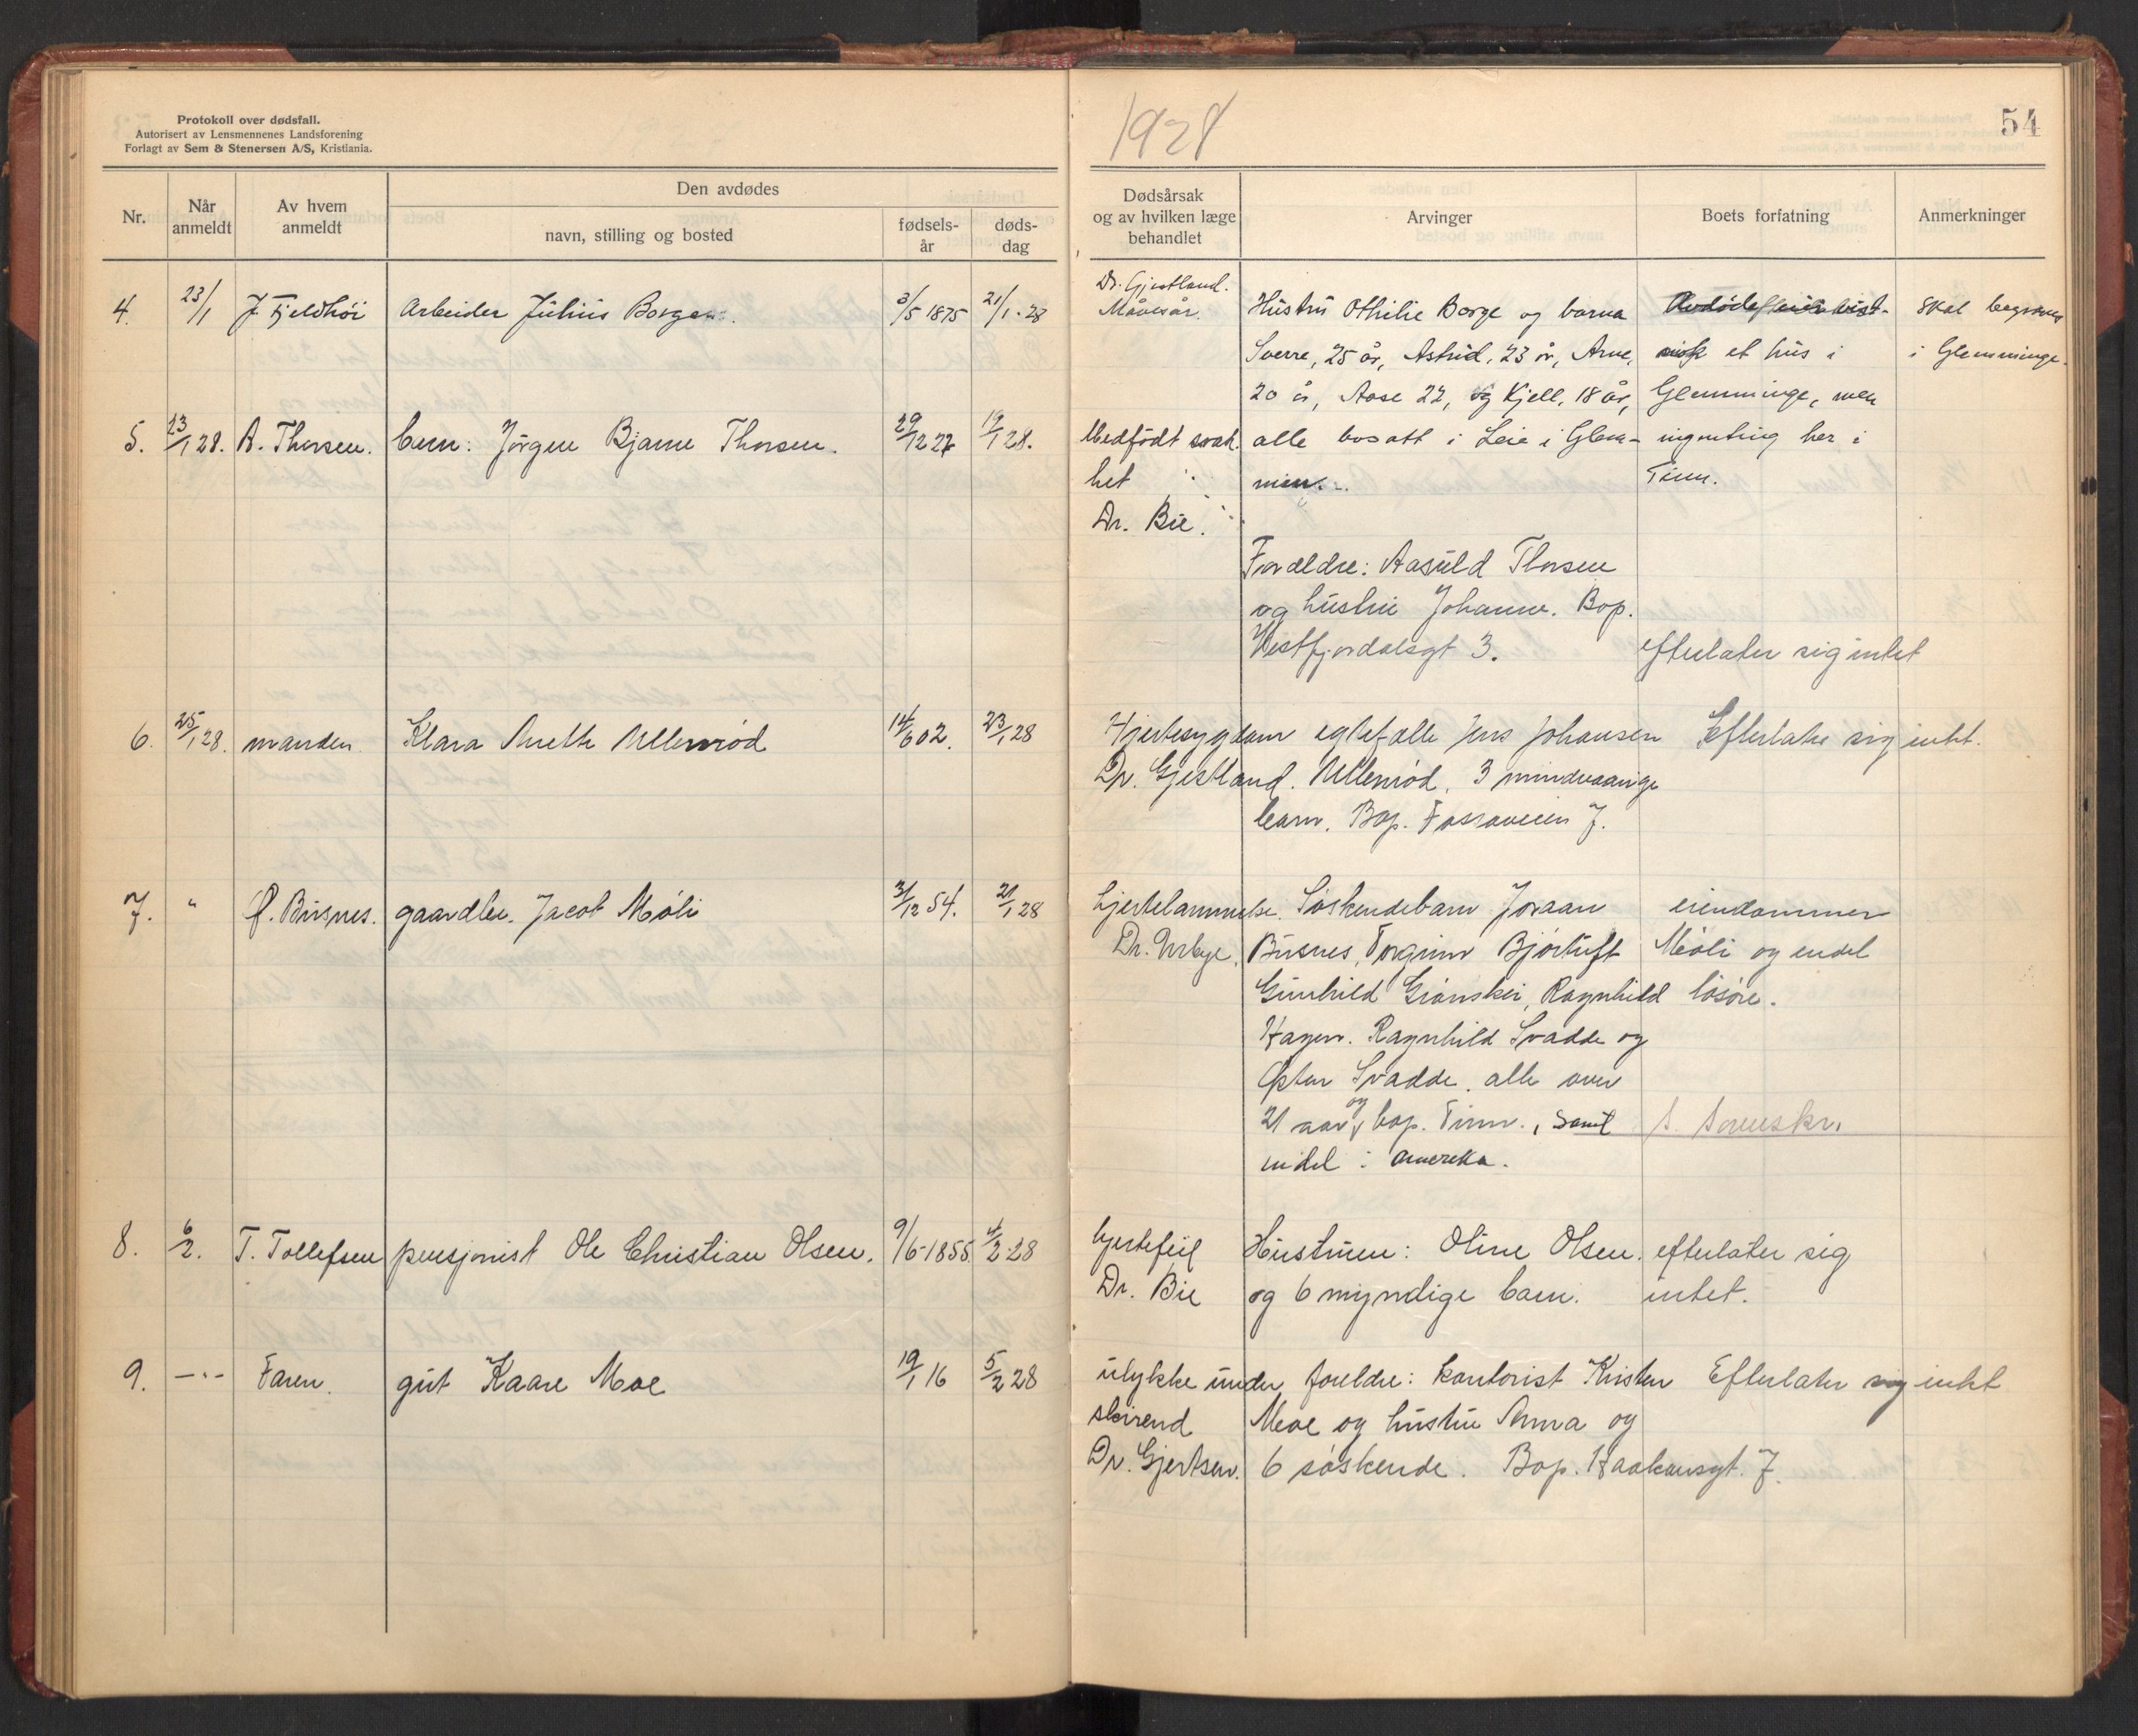 Protokoll over dødsfall.
Autorisert av Lensmennenes Landsforening
Forlagt av Sem & Stenersen A/S, Kristiania.
Nr.
Når anmeldt
Av hvem anmeldt
Den avdødes
navn, stilling og bosted
fødsels-år
døds-dag
4. 23/1 J. Fjeldhöi Arbeider Julius Borge 3/5 1875 21/1-28
5. 23/1 28. A. Thorsen. barn: Jörgen Bjarne Thorsen. 29/12 27 19/1 28.
6. 25/1 28. manden Klara Anette Ullerröd 14/6 02. 23/1 28
7. " J. Busnes. gaardbr. Jacob Möli 3/12 54. 21/1 28
8. 6/2. T. Tollefsen pensjonist Ole Christian Olsen. 9/6-1855 4/2 28
9. —"— Faren. gut Kaare Moe 19/1 16 5/2 28
1928
54
Dødsårsak
og av hvilken læge
behandlet
Arvinger
Boets forfatning
Anmerkninger
Dr. Gjestland.
Mavesår. Hustru Othilie Borge og barna
Sverre, 25 år, Astrid, 23 år, Arne,
20 år, Aase 22, og Kjell, 18 år,
alle bosatt i Leie i Glem-
men.
et hus i
Glemminge, men
ingenting her i
Tinn.
Skal begraves
i Glemminge.
Medfödt svak-
het
Dr. Bie.
Foreldre: Aasuld Thorsen
og hustru Johanne. Bop.
Vestfjordalsgt 3. efterlater sig intet
Hjertesygdom egtefelle Jens Johansen Efterlater sig intet.
Dr. Gjestland. Ullerröd, 3 mindreaarige
barn. Bop. Fossoveien 7.
hjertelammelse. Söskendebarn Joraan eiendommen
Dr. Urbye. Busnes, Torgrim Bjørtuft Möli og endel
Gunhild Grönskei, Ragnhild lösöre.
Hagen. Ragnhild Svadde og
Östen Svadde. alle over
21 aar og bop. Tinn., samt
endel i Amerika.
hjertefeil Hustruen: Oline Olsen. efterlater sig
Dr. Bie og 6 myndige barn. intet.
ulykke under foreldre: kontorist Kristen Efterlater sig intet
skirend Moe og hustru Anna og
Dr. Gjertsen. 6 söskende. Bop. Haakonsgt. 7.